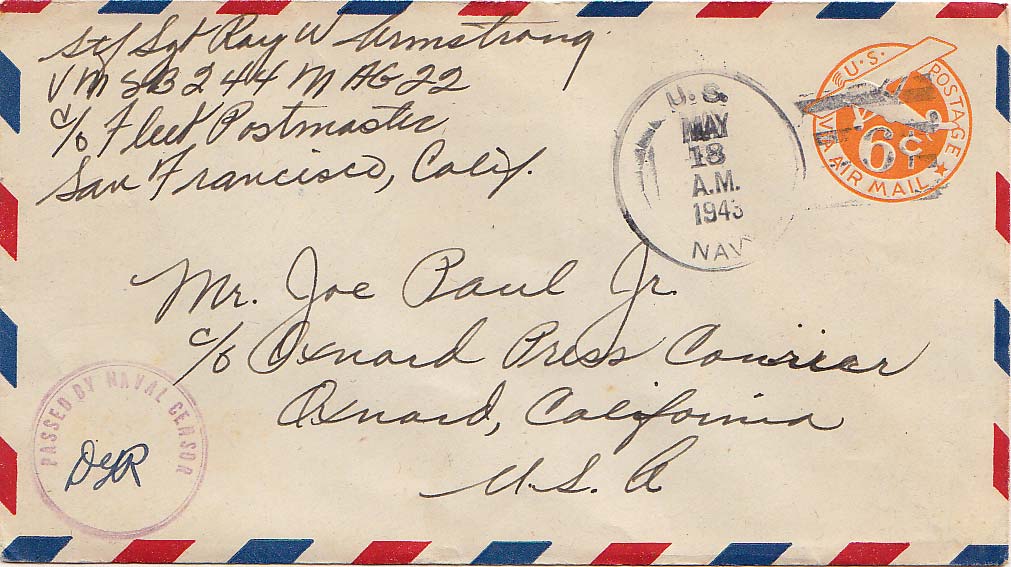 Stf Sgt Ray W Armstrong
VMSB 244 MAG 22
c/o Fleet Postmaster
San Francisco, Calif.
U.S.
MAY
18
A.M.
1943
NAVY
U.S. POSTAGE
6¢
VIA AIR MAIL
Mr. Joe Paul Jr.
c/o Oxnard Press Courier
Oxnard, California
U.S.A
PASSED BY NAVAL CENSOR